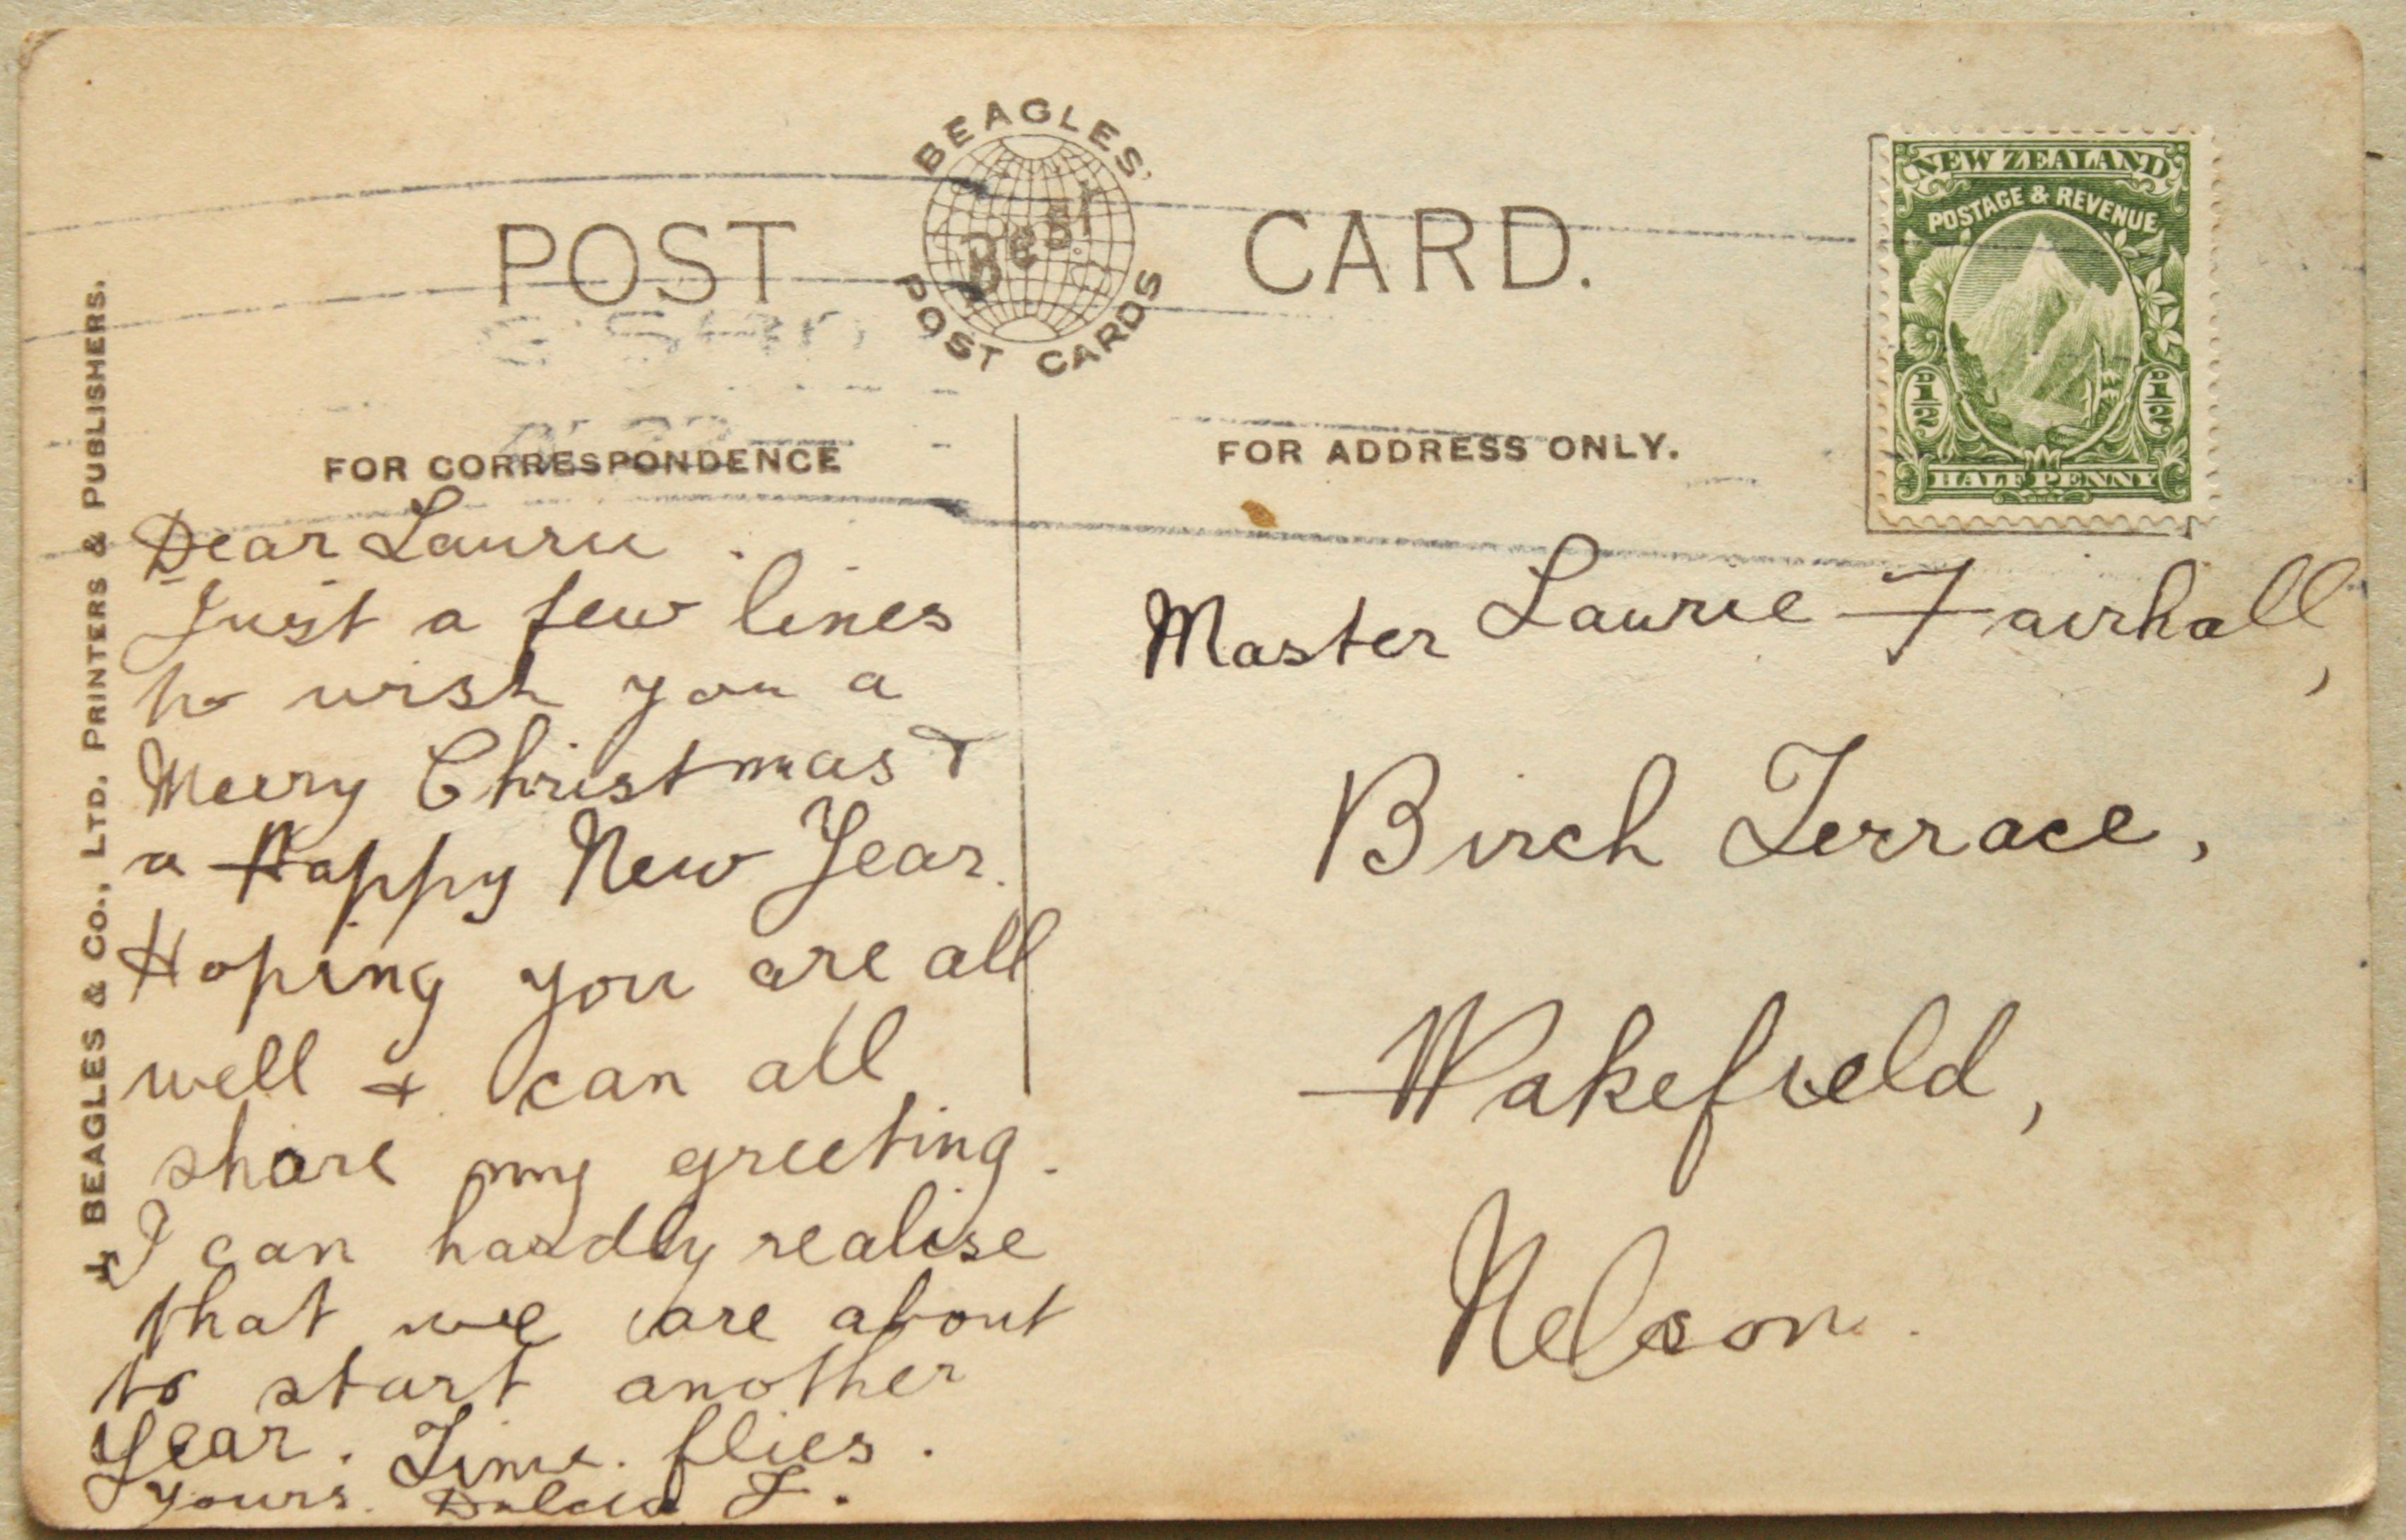 BEAGLES'
Best
POST CARDS
POST CARD.
NEW ZEALAND
POSTAGE & REVENUE
D 1/2 D 1/2
HALF PENNY
FOR CORRESPONDENCE
Dear Laurie.
Just a few lines
to wish you a
Merry Christmas &
a Happy New Year.
Hoping you are all
well & can all
share my greeting.
I can hardly realise
that we are about
to start another
Year. Time. flies.
Yours. F.
FOR ADDRESS ONLY.
Master Laurie Fairhall,
Birch Terrace,
Wakefield,
Nelson.
J. BEAGLES & CO., LTD. PRINTERS & PUBLISHERS.